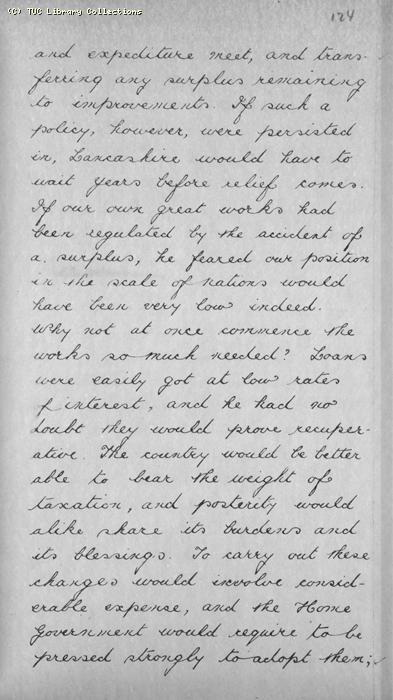 (C) TUC Library Collections
124
and expediture meet, and trans-
ferring any surplus remaining
to improvements. If such a
policy, however, were persisted
in, Lancashire would have to
wait years before relief comes.
If our own great works had
been regulated by the accident of
a surplus, he feared our position
in the scale of nations would
have been very low indeed.
Why not at once commence the
works so much needed? Loans
were easily got at low rates
of interest, and he had no
doubt they would prove recuper-
ative. The country would be better
able to bear the weight of
taxation, and posterity would
alike share its burdens and
its blessings. To carry out these
changes would involve consid-
erable expense, and the Home
Government would require to be
pressed strongly to adopt them;